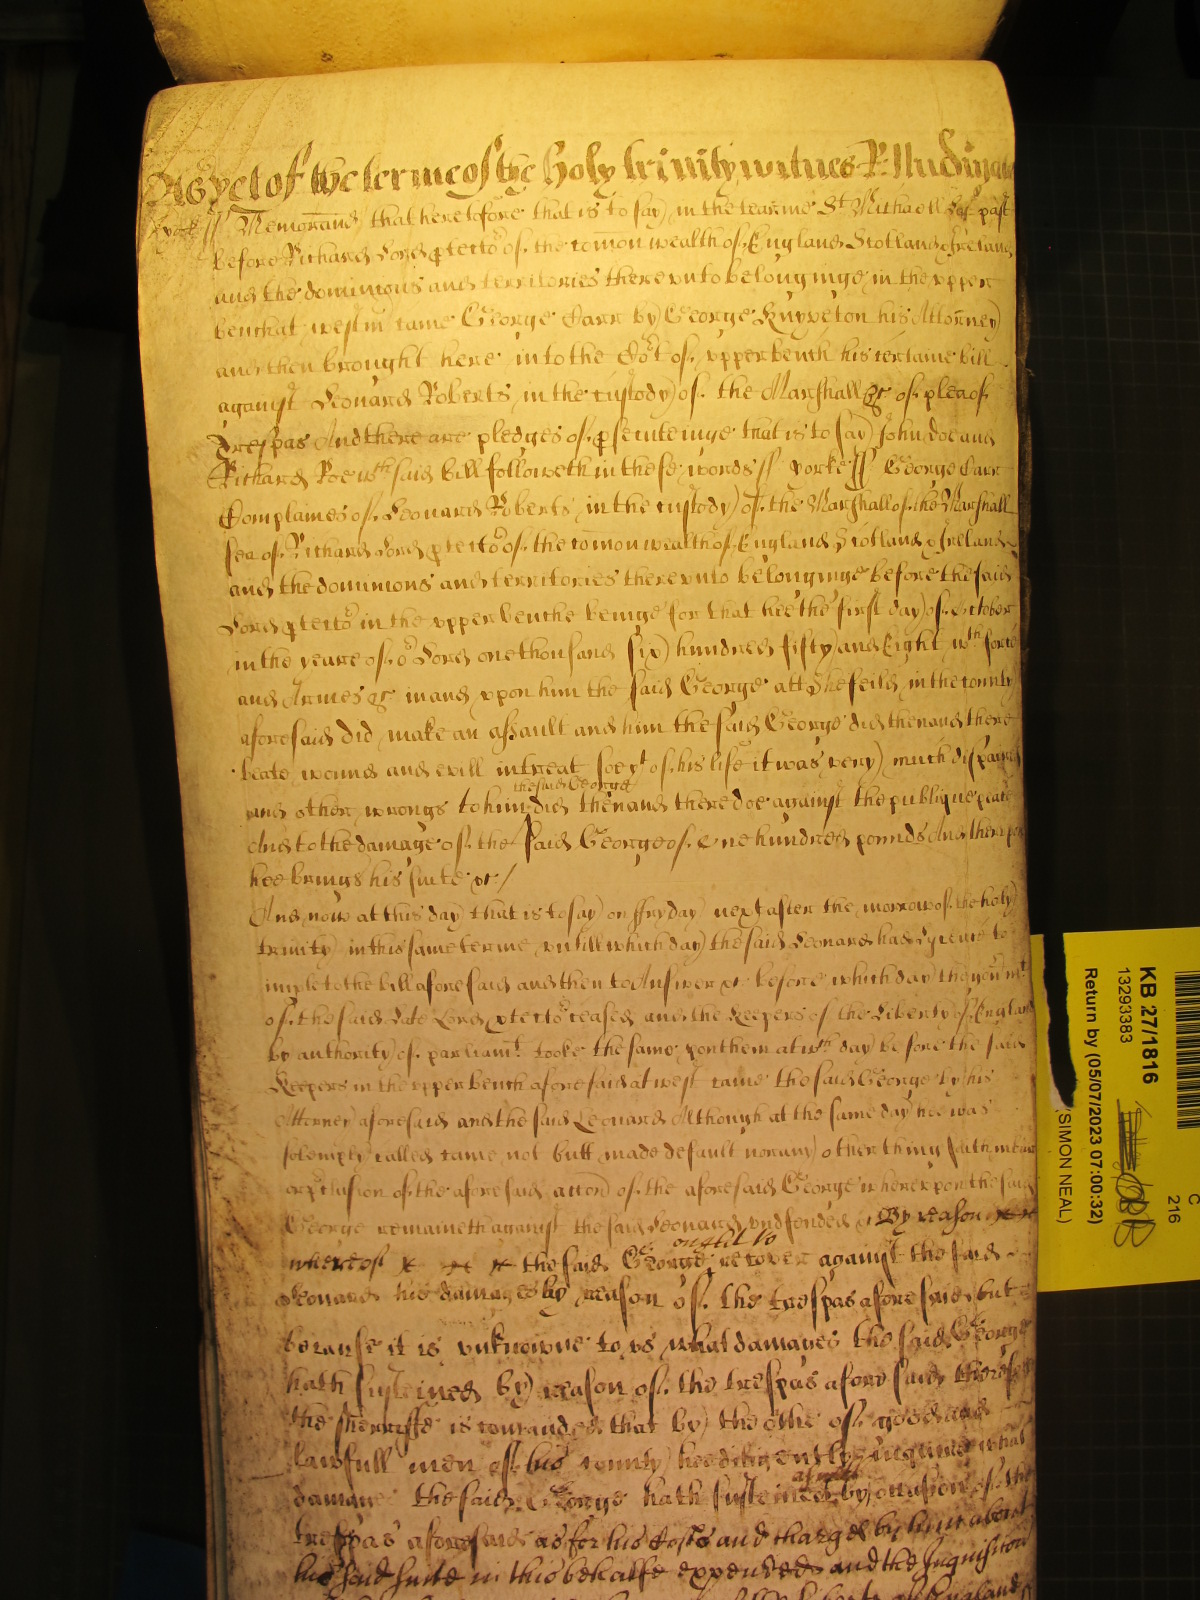 As yet of the terme of the holy Trinity witnes R: Nudigate
Yorke ss Memorand that heretofore that is to say in the tearme St Michaell last past
before Richard Lord ptector of the comon wealth of England Scotland & Ireland
and the dominions and territories there vnto belonginge in the vpper
bench at westm came George Carr by George Knyveton his Attorney
and then brought here into the Cort of vpper bench his certaine bill
against Leonard Roberts in the custody of the Marshall &c of plea of
Trespas And there are pledges of psecuteinge that is to say John Doe and
Richard Roe wch said bill followeth in these words ss Yorke ss George Carr
Complaines of Leonard Roberts in the custody of the Marshall of the Marshall
sea of Richard Lord ptector of the comon wealth of England Scotland & Ireland
and the dominions and territories there vnto belonginge before the said
Lord ptector in the vpper benche beinge for that hee the first day of October
in the yeare of or Lord one thousand six hundred fifty and Eight wth force
and Armes &c in and vpon him the said George att Shefeild in the county
aforesaid did make an assault and him the said George did then and there
beate wound and evill intreat soe yt of his life it was very much dispaired
the said George
and other wrongs to him did then and there doe against the publique peace
And to the damage of the said George of one hundred pounds And therevpon
hee brings his suite &c /
And now at this day that is to say on ffryday next after the morrow of the holy
trinity in this same terme vntill which day the said Leonard had lycence to
imple to the bill aforesaid and then to Answer &c before which day the govermt
of the said Late Lord ptector ceased and the Keepers of the Liberty of England
by authority of parliamt tooke the same vpon them at wch day before the said
Keepers in the vpper bench aforesaid at westm came the said George by his
Attorney aforesaid and the said Leonard Although at the same day hee was
solemply called came not butt made default nor any other thing saith in barr
or p clusion of the aforesaid accon of the aforesaid George wherevpon the said
George remaineth against the said Leonard vndfended &c By reason
ought to
whereof the said George recover against the said
Leonard his damages by reason of the trespas aforesaid but
because it is vnknowne to vs what damages the said George
hath susteined by reason of the trespas aforesaid therefore
the sherriffe is comanded that by the othe of good and
lawfull men of his county hee diligently inquire what
as well
damage the said George hath susteined by occasion of the
trespas aforesaid as for his Costs and charges by him about
his said suite in this behalfe expended and the Inquisicon
KB 27/1816
13293383
Return by (05/07/2023 07:00:32)
(SIMON NEAL)
C
216